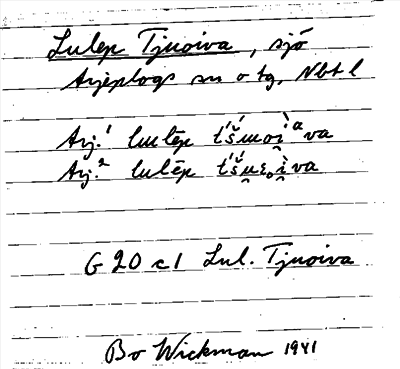 Lulep Tjuoiva, sjö
Arjeplogs sn o tg, Nbt l
Arj.¹ lulēp
Arj.² lulēp
G 20 c 1 Lul. Tjuoiva
Bo Wickman 1941